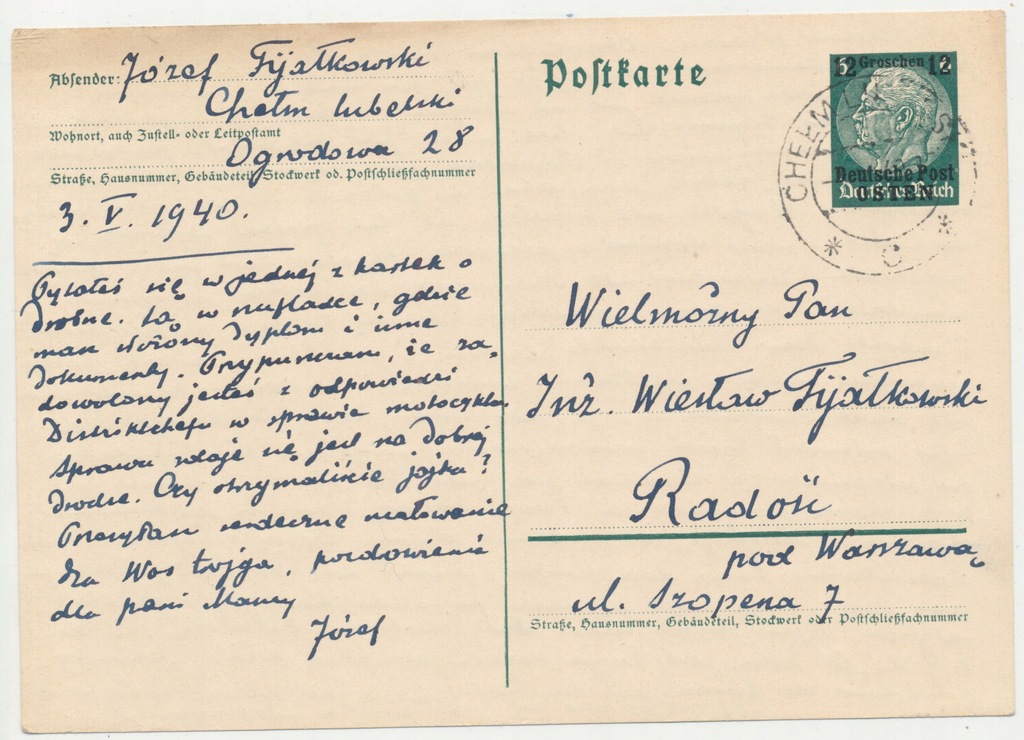 Absender: Józef Fijałkowski
Chełm Lubelski
Wohnort, auch Zustell- oder Leitpostamt
Ogrodowa 28
Straße, Hausnummer, Gebäudeteil, Stockwerk od. Postschließfachnummer
3. V. 1940.
Pytałeś się w jednej z kartek o
drobne. Są w szufladce, gdzie
mam złożony dyplom i inne
dokumenty. Przypuszczam, że za-
dowolony jesteś z odpowiedzi
Distriktchefa w sprawie motocykla.
Sprawa zdaje się jest na dobrej
drodze. Czy otrzymaliście jajka?
Przesyłam serdeczne ucałowania
dla Was trojga, pozdrowienia
dla pani Mamy
Józef
Postkarte
12 Groschen 12
Deutsche Post
OSTEN
Deutsches Reich
CHEŁM
C
Wielmożny Pan
Inż. Wiesław Fijałkowski
Radość
pod Warszawą
ul. Szopena 7
Straße, Hausnummer, Gebäudeteil, Stockwerk oder Postschließfachnummer